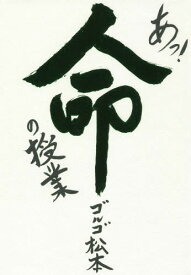 あっ!
命
の授業
ゴルゴ松本